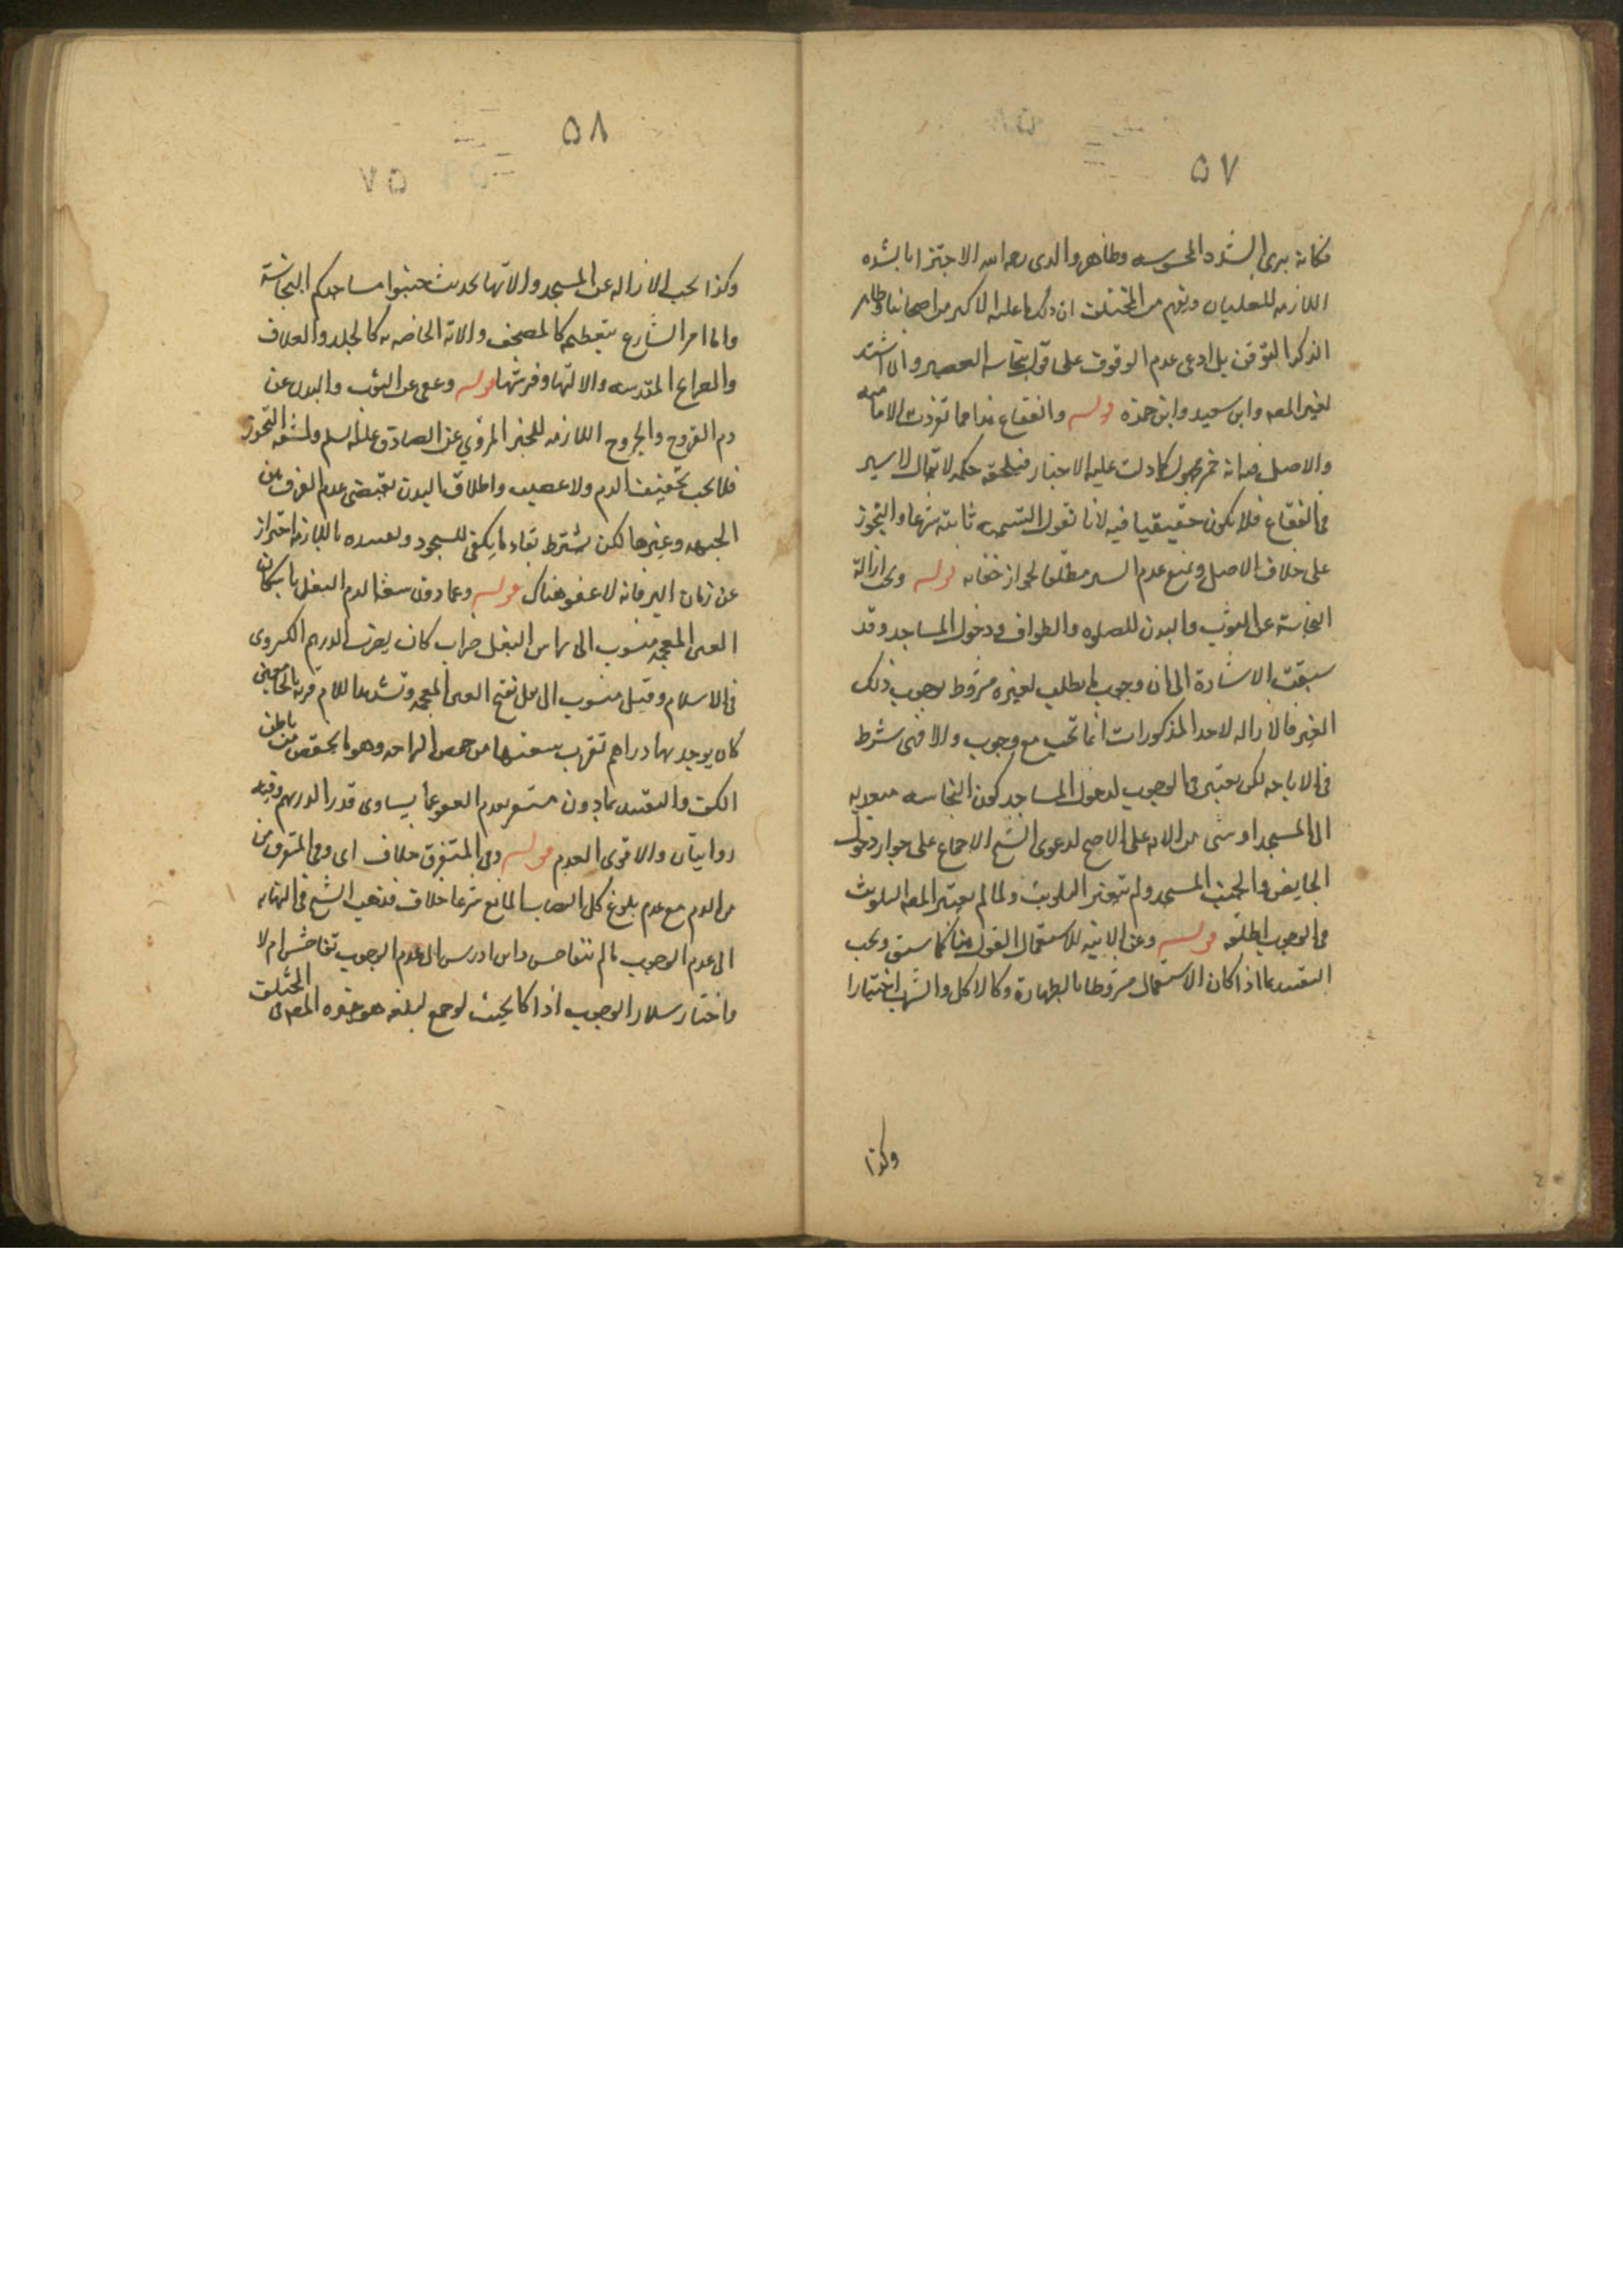 ٥٧
فكانه يرى الشدة المحسوسه وظاهر والدى رحمه الله الاجتزا بالشده
اللازمه للغليان ويفهم من المختلف ان ذلك ما عليه الاكثر من اصحابنا وظاهر
الذكرى التوقف بل ادعى عدم الوقوف على قول بنجاسه العصير وان اشتد
لغير المصه وابن سعيد وابن حمزه قوله والفقاع هذا مما تفردت به الاماميه
والاصل فيه انه خمر مجهول كما دلت عليه الاخبار فيلحقه حكمه لا يقال لا سير
فى الفقاع فلا يكون حقيقيا فيه لانا نقول التسميه ثابته شرعا والتجوز
على خلاف الاصل ونمنع عدم السير مطلقا لجواز خفائه قوله ويجب ازالة
النجاسة عن الثوب والبدن للصلوه والطواف ودخول المساجد وقد
سبقت الاشارة الى ان وجوب ما يطلب لغيره مشروط بوجوب ذلك
الغير فالازاله لاحد المذكورات انما تجب مع وجوب والا فهى شرط
فى الاباحه لكن يعتبر فى الوجوب لدخول المساجد كون النجاسه متعديه
الى المسجد او شى من الاته على الاصح لدعوى الشيخ الاجماع على جواز دخول
الحايض والجنب المسجد ولم تعتبر التلويث ولما لم يعتبر المصه التلويث
فى الوجوب اطلقه قوله وعن الانيه للاستعمال القول هنا كما سبق ويجب
التقييد بما اذا كان الاستعمال مشروطا بالطهارة وكالاكل والشرب اختيارا
وكذا
٥٨
وكذا تجب الازاله عن المسجد والاتها لحديث جنبوا مساجدكم النجاسة
واما امر الشارع بتعظيمه كالمصحف والاته الخاصه به كالجلد والغلاف
والضراع المقدسه والاتها وفرشها قوله وعفى عن الثوب والبدن عن
دم القروح والجروح اللازمه للخبر المروي عن الصادق عليه السلم ولمشقه التحوز
فلا يجب تخفيف الدم ولا عصبه واطلاق البدن يقتضى عدم الفرق بين
الجبهه وغيرها لكن يشترط بقاء ما يكفى للسجود وتقييده باللازمه احتراز
عن زمان البرء فانه لا عفو هناك قوله وعما دون سعه الدم البغلى باسكان
الغين المعجمه منسوب الى راس البغل ضراب كان يضرب الدرهم الكسروى
فى الاسلام وقيل منسوب الى بغل بفتح الغين المعجمه وتشديد اللام قريه بالجامعين
كان يوجد بها دراهم تقرب سعتها من اخمص الراحه وهو ما يخفض من باطن
الكف والتقييد بما دون مشعر بعدم العفو عما يساوى قدر الدرهم وفيه
روايتان والاقوى العدم قوله وفى المتفرق خلاف اى وفى المتفرق من
من الدم مع عدم بلوغ كل النصاب المانع شرعا خلاف فذهب الشيخ فى النهايه
الى عدم الوجوب ما لم يتفاحش وابن ادريس الى عدم الوجوب تفاحش ام لا
واختار سلار الوجوب اذا كا بحيث لو جمع لبلغه هو خيره المصه فى المختلف